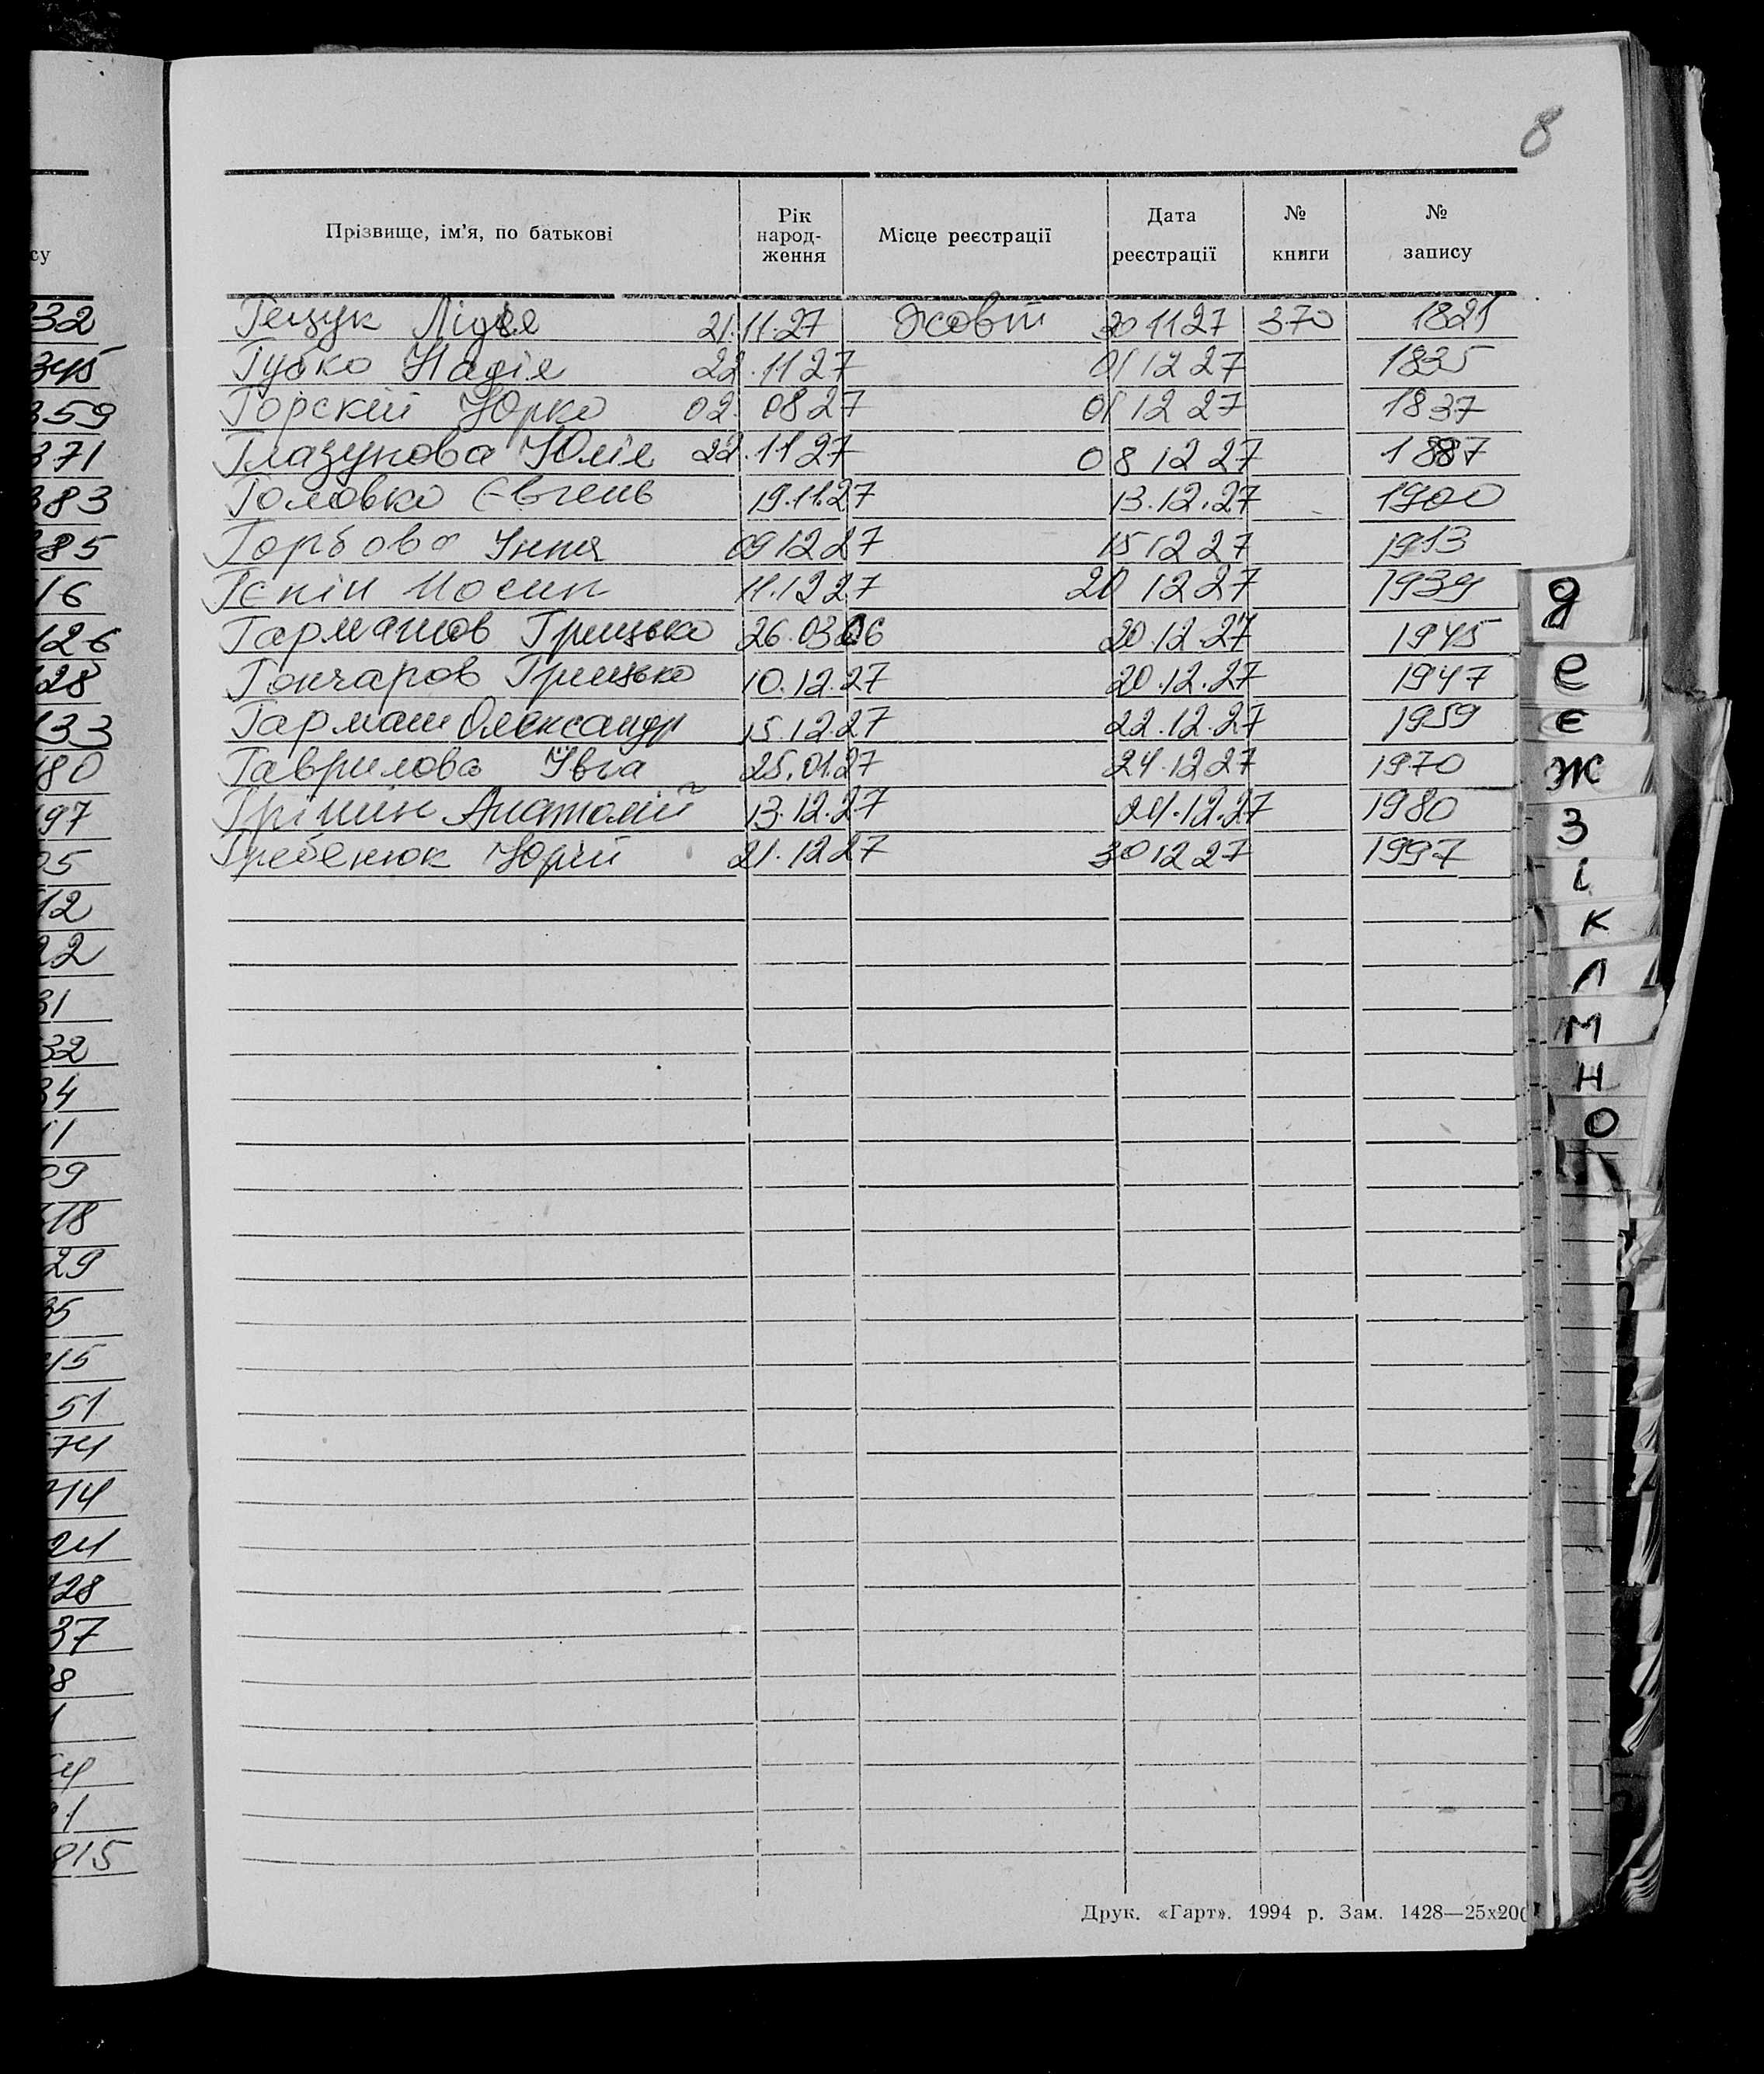 8
Прізвище, ім'я, по батькові
Рік народ-ження
Місце реєстрації
Дата реєстрації
№ книги
№ запису
Гещук Лідіє 21.11.27 Жовт 30 11 27 370 1821
Губко Надіе 22.11 27 01 12 27 1835
Горскій Юрко 02 08 27 01 12 27 1837
Глазунова Юліе 22.11 27 08 12 27 1887
Головко Євгень 19.11.27 13.12.27 1900
Горбова Інна 09 12 27 15 12 27 1913
11.12 27 20 12 27 1939
Гармашов Грицько 26.03.06 20.12.27 1945
Гончаров Грицько 10.12.27 20.12.27 1947
Гармаш Олександр 15.12.27 22.12.27 1959
Гаврилова Івга 25.01.27 24.12 27 1970
Грішин Анатолій 13.12.27 24.12.27 1980
Гребенюк Юрій 21.12 27 30 12 27 1997
Друк. «Гарт». 1994 р. Зам. 1428—25х200
су
32
345
359
371
383
385
16
126
128
133
180
197
05
12
22
31
32
34
11
09
118
29
35
45
51
74
14
24
128
37
8
1
4
1
815
д
е
є
ж
з
і
к
л
м
н
о